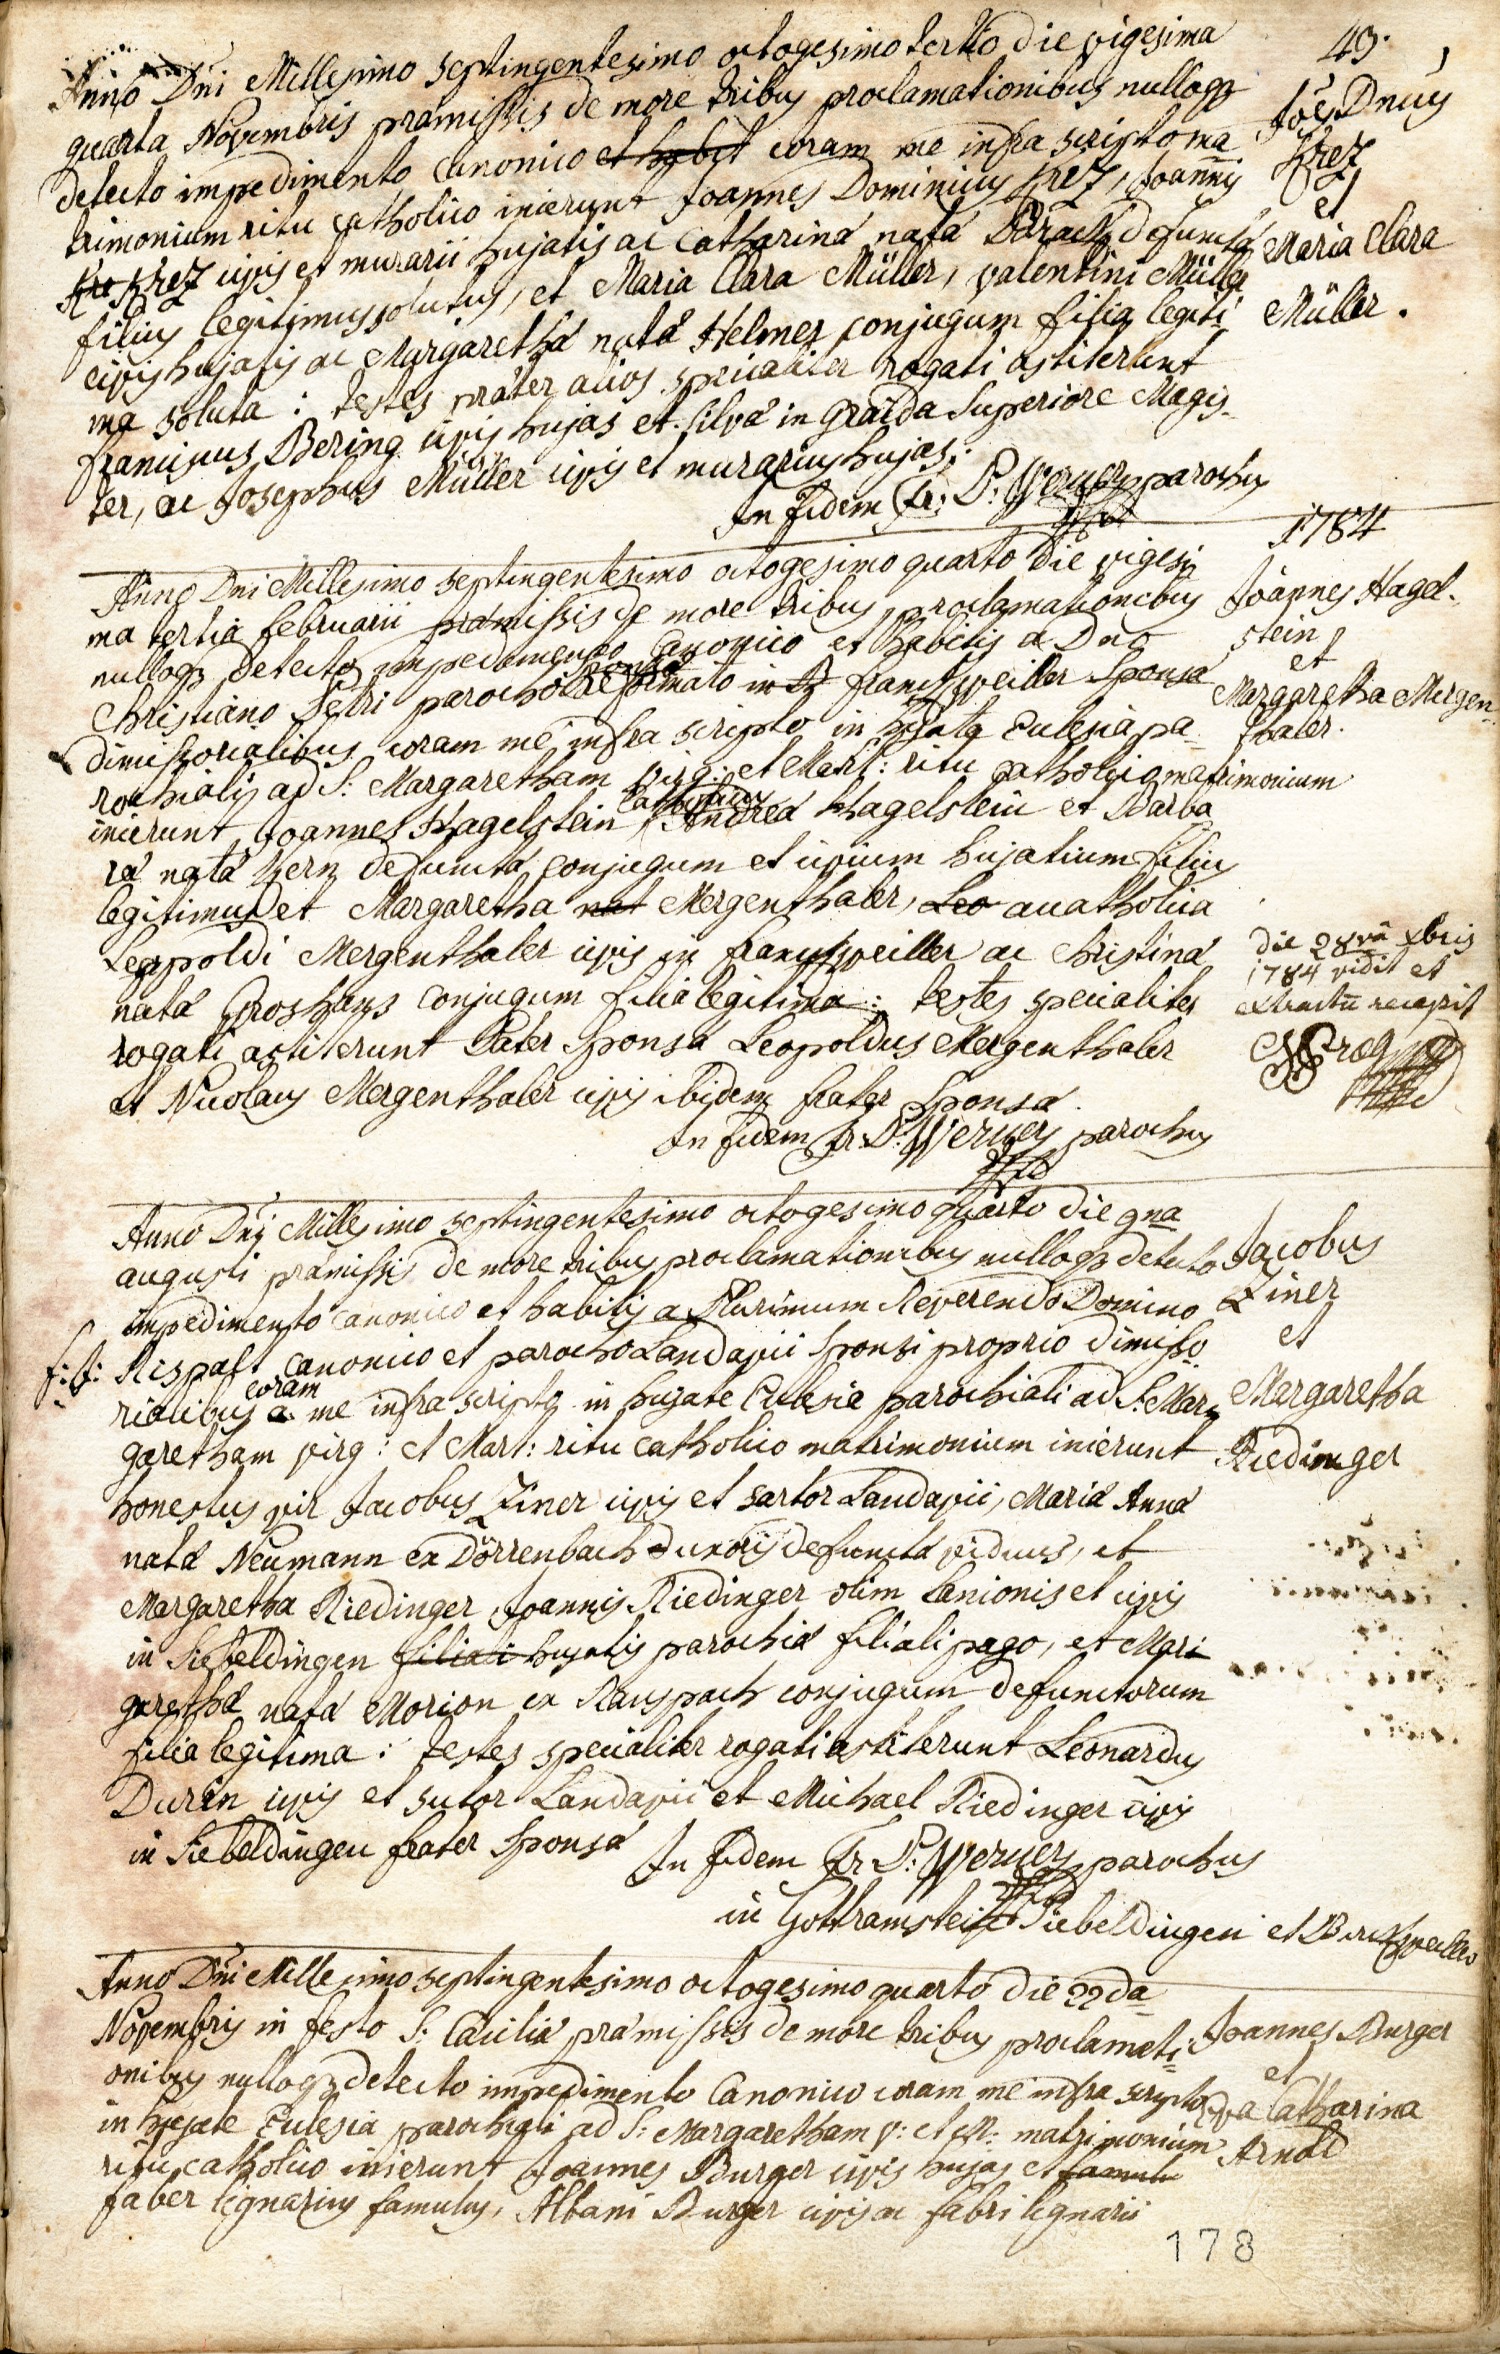 49.
Anno Dni Millesimo septingentesimo octogesimo tertio die vigesima
quarta Novembris præmissis de more tribus proclamationibus nulloq
detecto impedimento canonico et habit coram me infra scripto ma
trimonium ritu catholico inierunt Joannes Dominicus Frez, Joannis
Frez civis et murarii hujatis ac Catharinâ natâ defunctâ
filius legitimus solutus, et Maria Clara Müller, Valentini Müller
civis hujatis ac Margarethâ natâ Helmer conjugum filia legiti
ma soluta: testes præter alios specialiter rogati astiterunt
franciscus Bering civis hujas et silvæ in Graida Superiore Magis
ter, ac Josephus Müller civis et murarius hujas;
In fidem fr: P: Werner parochus
Joes Dnicus
Frez
et
Maria Clara
Müller.
1784
Anno Dni Millesimo septingentesimo octogesimo quarto die vigesi
ma tertia februarii præmissis de more tribus proclamationibus
nulloq detecto impedimento canonico et habitis a Dno
Christiano Petri parocho reformato in franckweiller Sponsæ
dimissorialibus coram me infra scripto in hujate Ecclesia pa
rochiali ad S: Margaretham virg: et Mart: ritu catholico matrimonium
inierunt Joannes Hagelstein catholicus Andreâ Hagelstein et Barba
râ natâ Kern defunctâ conjugum et civium hujatium filius
legitimus et Margaretha nat Mergenthaler, Leo acatholica
Leopoldi Mergenthaler civis in franckweiller ac Christinâ
natâ Groshans conjugum filia legitima: testes specialiter
rogati astiterunt Pater Sponsæ Leopoldus Mergenthaler
et Nicolaus Mergenthaler civis ibidem frater Sponsæ.
In fidem fr P: Werner parochus
Joannes Hagel-
stein
et
Margaretha Mergen
thaler.
die 28va Xbris
1784 vidit et
extractũ recepit
Anno Dni Millesimo septingentesimo octogesimo quarto die 9na
augusti præmissis de more tribus proclamationibus nulloq detecto
impedimento canonico et habitis a Plurimum Reverendo Domino
f: f: Rispalt canonico et parocho Landavii Sponsi proprio dimisso
rialibus a coram me infra scripto in hujate Ecclesia parochiali ad S: Mar
garetham virg: et Mart: ritu catholico matrimonium inierunt
honestus vir Jacobus Ziner civis et sartor Landavii, Mariæ Annæ
natæ Neumann ex Dörrenbach uxoris defunctæ viduus, et
Margaretha Riedinger Joannis Riedinger olim Lanionis et civis
in Siebeldingen filiali hujatis parochiæ filiali pago, et Mar
garethæ natæ Morion ex Ranspach conjugum defunctorum
filia legitima: testes specialiter rogati astiterunt Leonardus
Duren civis et sutor Landavii et Michael Riedinger civis
in Siebeldingen frater Sponsæ
In fidem fr P: Werner parochus
in Gottramstein Siebeldingen et
Jacobus
Ziner
et
Margaretha
Riedinger
Anno Dni Millesimo septingentesimo octogesimo quarto die 22da
Novembris in festo S: Cæciliæ præmissis de more tribus proclamati
onibus nulloq detecto impedimento Canonico coram me infra scripto
in hujate Ecclesia parochiali ad S: Margaretham v: et M: matrimonium
ritu catholico inierunt Joannes Burger civis hujas et famulu
faber lignarius famulus, Albani Burger civis ac fabri lignarii
Joannes Burger
et
Eva Catharina
Arnold
178